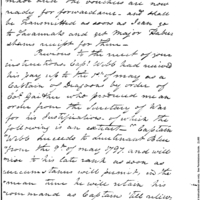 made and the vouchers are now
ready for forward and shall
be transmitted as soon as I can go
to Savannah and get Major
them.
Previous to the receipt of your
instructions Capt. Webb had received
his pay up to the 1st of may as a
Captain of Dragoons by order of
Col. Gaither who produced me an
order from the Secretary of War
for his Justification of which the
following is an extract "Captain
Webb succeeds to lieutenant
from the 9th of May 1797 and will
rise to his late rank as soon as
circumstances will permit, in the
mean time he will retain his
command as Captain till